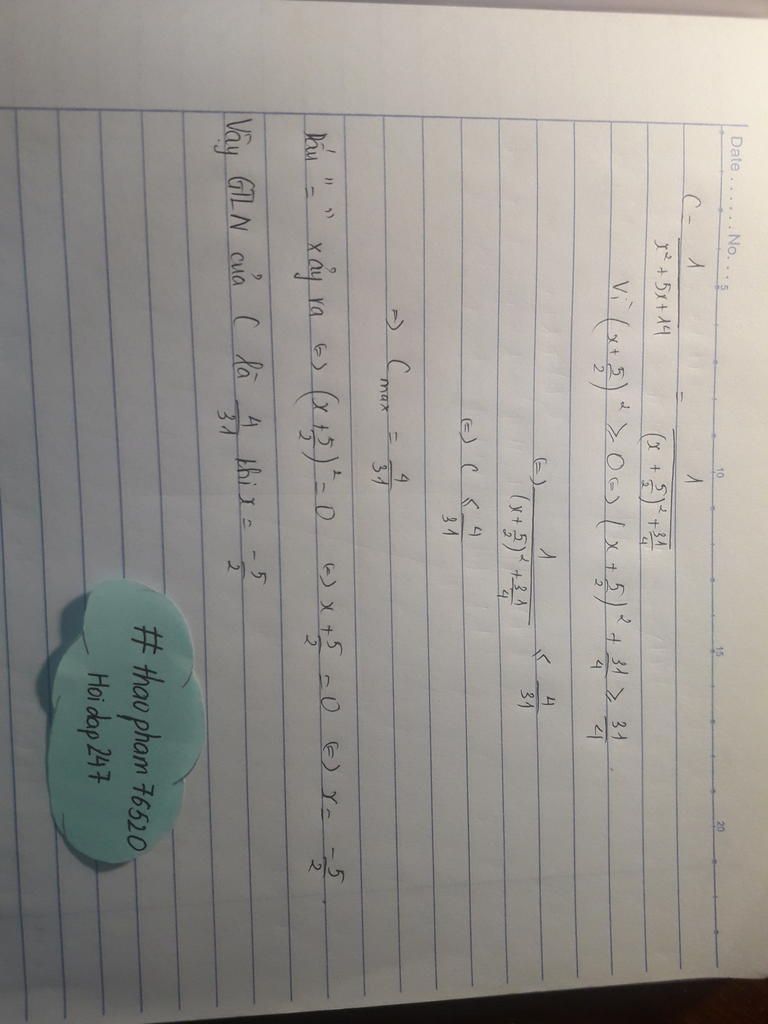 Date ....... No....
5 10 15 20
C = 1/(x² + 5x + 14) = 1/((x + 5/2)² + 31/4)
Vì (x + 5/2)² ≥ 0 (=) (x + 5/2)² + 31/4 ≥ 31/4.
(=) 1/((x + 5/2)² + 31/4) ≤ 4/31
(=) C ≤ 4/31
=) C max = 4/31
Dấu "=" xảy ra (=) (x + 5/2)² = 0 (=) x + 5/2 = 0 (=) x = -5/2.
Vậy GTLN của C là 4/31 khi x = -5/2
# thaopham76520
Hoidap247